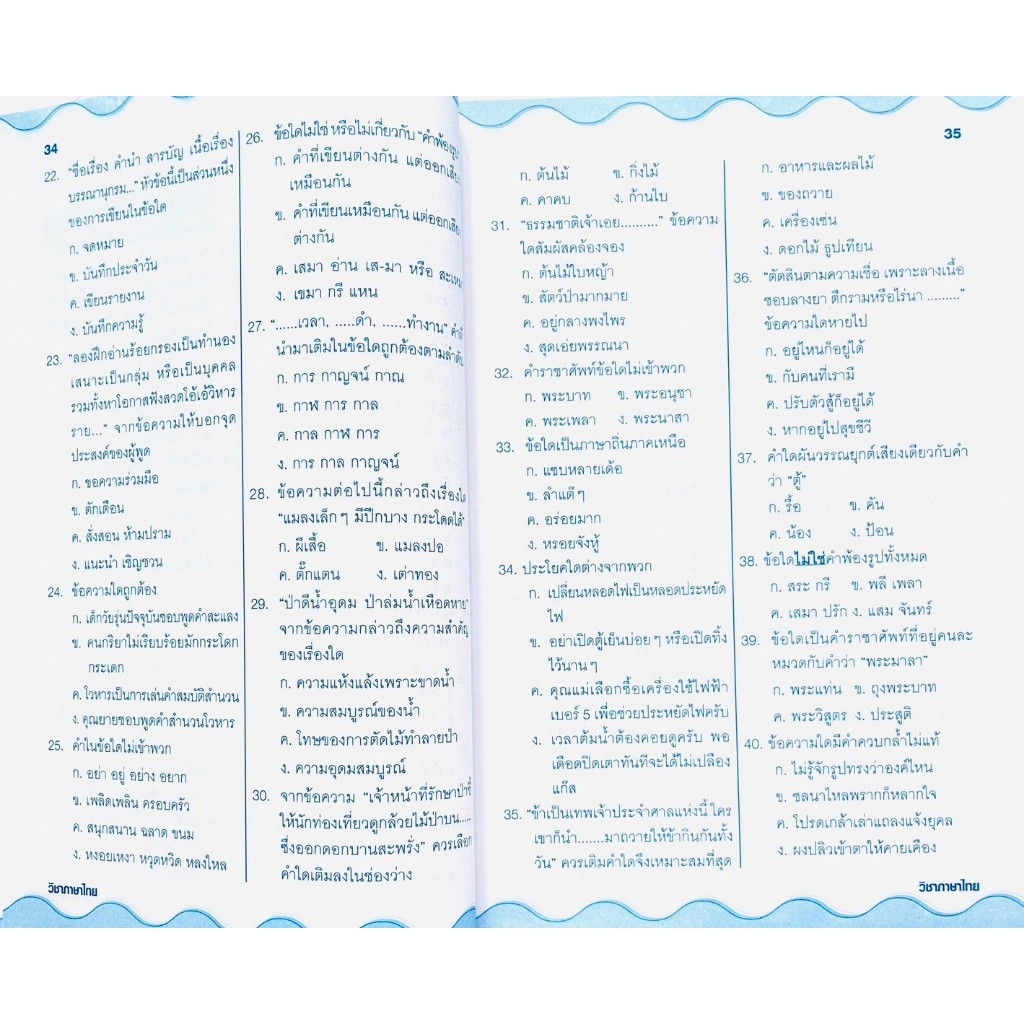 34
22. "ชื่อเรื่อง คำนำ สารบัญ เนื้อเรื่อง
บรรณานุกรม..." หัวข้อนี้เป็นส่วนหนึ่ง
ของการเขียนในข้อใด
ก. จดหมาย
ข. บันทึกประจำวัน
ค. เขียนรายงาน
ง. บันทึกความรู้
23. "ลองฝึกอ่านร้อยกรองเป็นทำนอง
เสนาะเป็นกลุ่ม หรือเป็นบุคคล
รวมทั้งหาโอกาสฟังสวดโอ้เอ้วิหาร
ราย..." จากข้อความให้บอกจุด
ประสงค์ของผู้พูด
ก. ขอความร่วมมือ
ข. ตักเตือน
ค. สั่งสอน ห้ามปราม
ง. แนะนำ เชิญชวน
24. ข้อความใดถูกต้อง
ก. เด็กวัยรุ่นปัจจุบันชอบพูดคำสะแลง
ข. คนกริยาไม่เรียบร้อยมักกระโดก
กระเดก
ค. โวหารเป็นการเล่นคำสมบัติสำนวน
ง. คุณยายชอบพูดคำสำนวนโวหาร
25. คำในข้อใดไม่เข้าพวก
ก. อย่า อยู่ อย่าง อยาก
ข. เพลิดเพลิน ครอบครัว
ค. สนุกสนาน ฉลาด ขนม
ง. หงอยเหงา หวุดหวิด หลงใหล
วิชาภาษาไทย
26. ข้อใดไม่ใช่ หรือไม่เกี่ยวกับ "คำพ้องรูป"
ก. คำที่เขียนต่างกัน แต่ออกเสียง
เหมือนกัน
ข. คำที่เขียนเหมือนกัน แต่ออกเสียง
ต่างกัน
ค. เสมา อ่าน เส-มา หรือ สะเหมา
ง. เขมา กรี แหน
27. "......เวลา, .....ดำ, ......ทำงาน" คำที่
นำมาเติมในข้อใดถูกต้องตามลำดับ
ก. การ กาญจน์ กาณ
ข. กาฬ การ กาล
ค. กาล กาฬ การ
ง. การ กาล กาญจน์
28. ข้อความต่อไปนี้กล่าวถึงเรื่องใด
"แมลงเล็กๆ มีปีกบาง กระโดดได้"
ก. ผีเสื้อ ข. แมลงปอ
ค. ตั๊กแตน ง. เต่าทอง
29. "ป่าดีน้ำอุดม ป่าล่มน้ำเหือดหาย"
จากข้อความกล่าวถึงความสำคัญ
ของเรื่องใด
ก. ความแห้งแล้งเพราะขาดน้ำ
ข. ความสมบูรณ์ของน้ำ
ค. โทษของการตัดไม้ทำลายป่า
ง. ความอุดมสมบูรณ์
30. จากข้อความ "เจ้าหน้าที่รักษาป่าชี้
ให้นักท่องเที่ยวดูกล้วยไม้ป่าบน.....
ซึ่งออกดอกบานสะพรั่ง" ควรเลือก
คำใดเติมลงในช่องว่าง
35
ก. ต้นไม้ ข. กิ่งไม้
ค. คาคบ ง. ก้านใบ
31. "ธรรมชาติเจ้าเอย.........." ข้อความ
ใดสัมผัสคล้องจอง
ก. ต้นไม้ใบหญ้า
ข. สัตว์ป่ามากมาย
ค. อยู่กลางพงไพร
ง. สุดเอ่ยพรรณนา
32. คำราชาศัพท์ข้อใดไม่เข้าพวก
ก. พระบาท ข. พระอนุชา
ค. พระเพลา ง. พระนาสา
33. ข้อใดเป็นภาษาถิ่นภาคเหนือ
ก. แซบหลายเด้อ
ข. ลำแต๊ๆ
ค. อร่อยมาก
ง. หรอยจังหู้
34. ประโยคใดต่างจากพวก
ก. เปลี่ยนหลอดไฟเป็นหลอดประหยัด
ไฟ
ข. อย่าเปิดตู้เย็นบ่อยๆ หรือเปิดทิ้ง
ไว้นานๆ
ค. คุณแม่เลือกซื้อเครื่องใช้ไฟฟ้า
เบอร์ 5 เพื่อช่วยประหยัดไฟครับ
ง. เวลาต้มน้ำต้องคอยดูครับ พอ
เดือดปิดเตาทันทีจะได้ไม่เปลือง
แก๊ส
35. "ข้าเป็นเทพเจ้าประจำศาลแห่งนี้ ใคร
เขาก็นำ.......มาถวายให้ข้ากินกันทั้ง
วัน" ควรเติมคำใดจึงเหมาะสมที่สุด
ก. อาหารและผลไม้
ข. ของถวาย
ค. เครื่องเซ่น
ง. ดอกไม้ ธูปเทียน
36. "ตัดสินตามความเชื่อ เพราะลางเนื้อ
ชอบลางยา ตึกรามหรือไร่นา ........."
ข้อความใดหายไป
ก. อยู่ไหนก็อยู่ได้
ข. กับคนที่เรามี
ค. ปรับตัวสู้ก็อยู่ได้
ง. หากอยู่ไปสุขชีวี
37. คำใดผันวรรณยุกต์เสียงเดียวกับคำ
ว่า "ตู้"
ก. รื้อ ข. คัน
ค. น้อง ง. ป้อน
38. ข้อใดไม่ใช่คำพ้องรูปทั้งหมด
ก. สระ กรี ข. พลี เพลา
ค. เสมา ปรัก ง. แสม จันทร์
39. ข้อใดเป็นคำราชาศัพท์ที่อยู่คนละ
หมวดกับคำว่า "พระมาลา"
ก. พระแท่น ข. ถุงพระบาท
ค. พระวิสูตร ง. ประสูติ
40. ข้อความใดมีคำควบกล้ำไม่แท้
ก. ไม่รู้จักรูปทรงว่าองค์ไหน
ข. ชลนาไหลพรากก็หลากใจ
ค. โปรดเกล้าเล่าแถลงแจ้งยุคล
ง. ผงปลิวเข้าตาให้คายเคือง
วิชาภาษาไทย